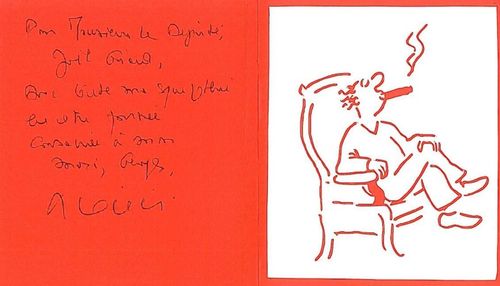 Pour Monsieur Le Député,
Joël Giraud,
Avec toute ma sympathie
cette journée
consacrée à mon
ami, Georges,